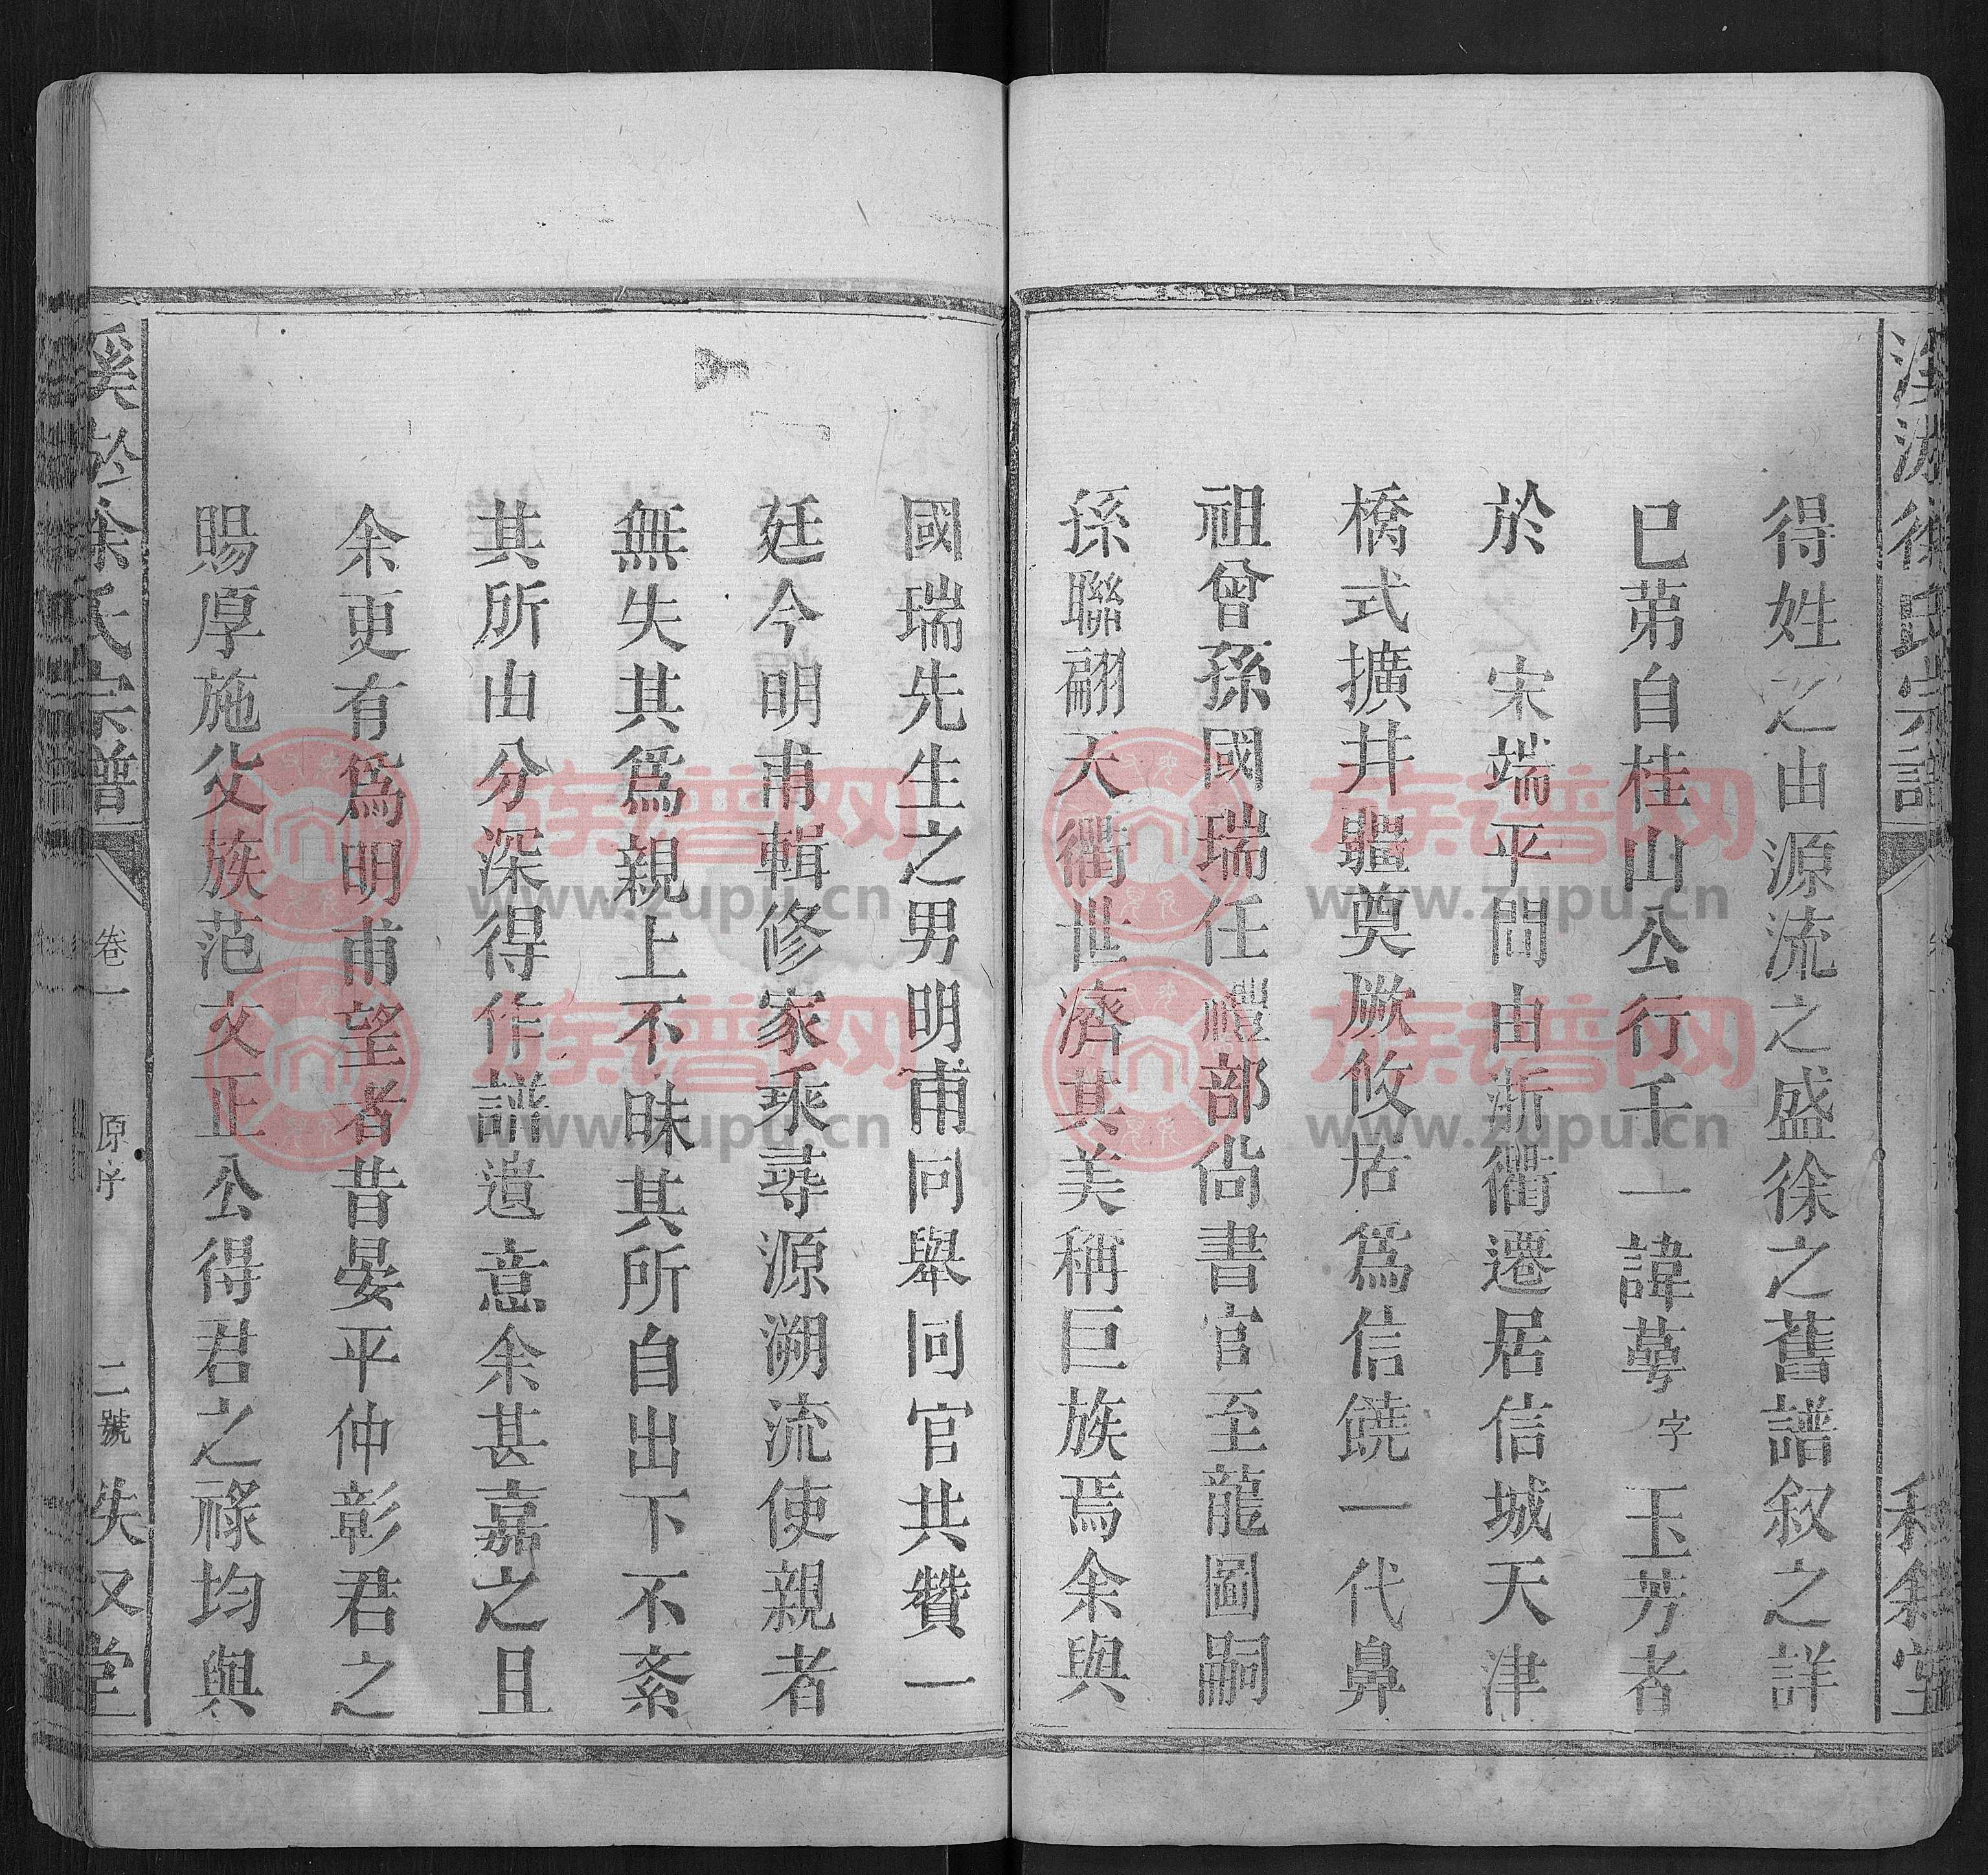 得姓之由源流之盛徐之舊譜叙之詳
巳苐自桂山公行千一諱蕚字玉芳者
於宋端平間由浙衢遷居信城天津
橋式擴井疆奠厥攸居爲信饒一代鼻
祖曾孫國瑞任禮部尙書官至龍圖嗣
孫聯翩天衢世濟其美稱巨族焉余與
國瑞先生之男明甫同舉同官共贊一
廷今明甫輯修家乘尋源溯流使親者
無失其爲親上不昧其所自出下不紊
其所由分深得作譜遺意余甚嘉之且
余更有爲明甫望者昔晏平仲彰君之
賜厚施父族范文正公得君之祿均與
徐氏宗譜
卷一
原序
二號
堂
徐氏宗譜
堂
族谱网
www.zupu.cn
族谱网
www.zupu.cn
族谱网
www.zupu.cn
族谱网
www.zupu.cn